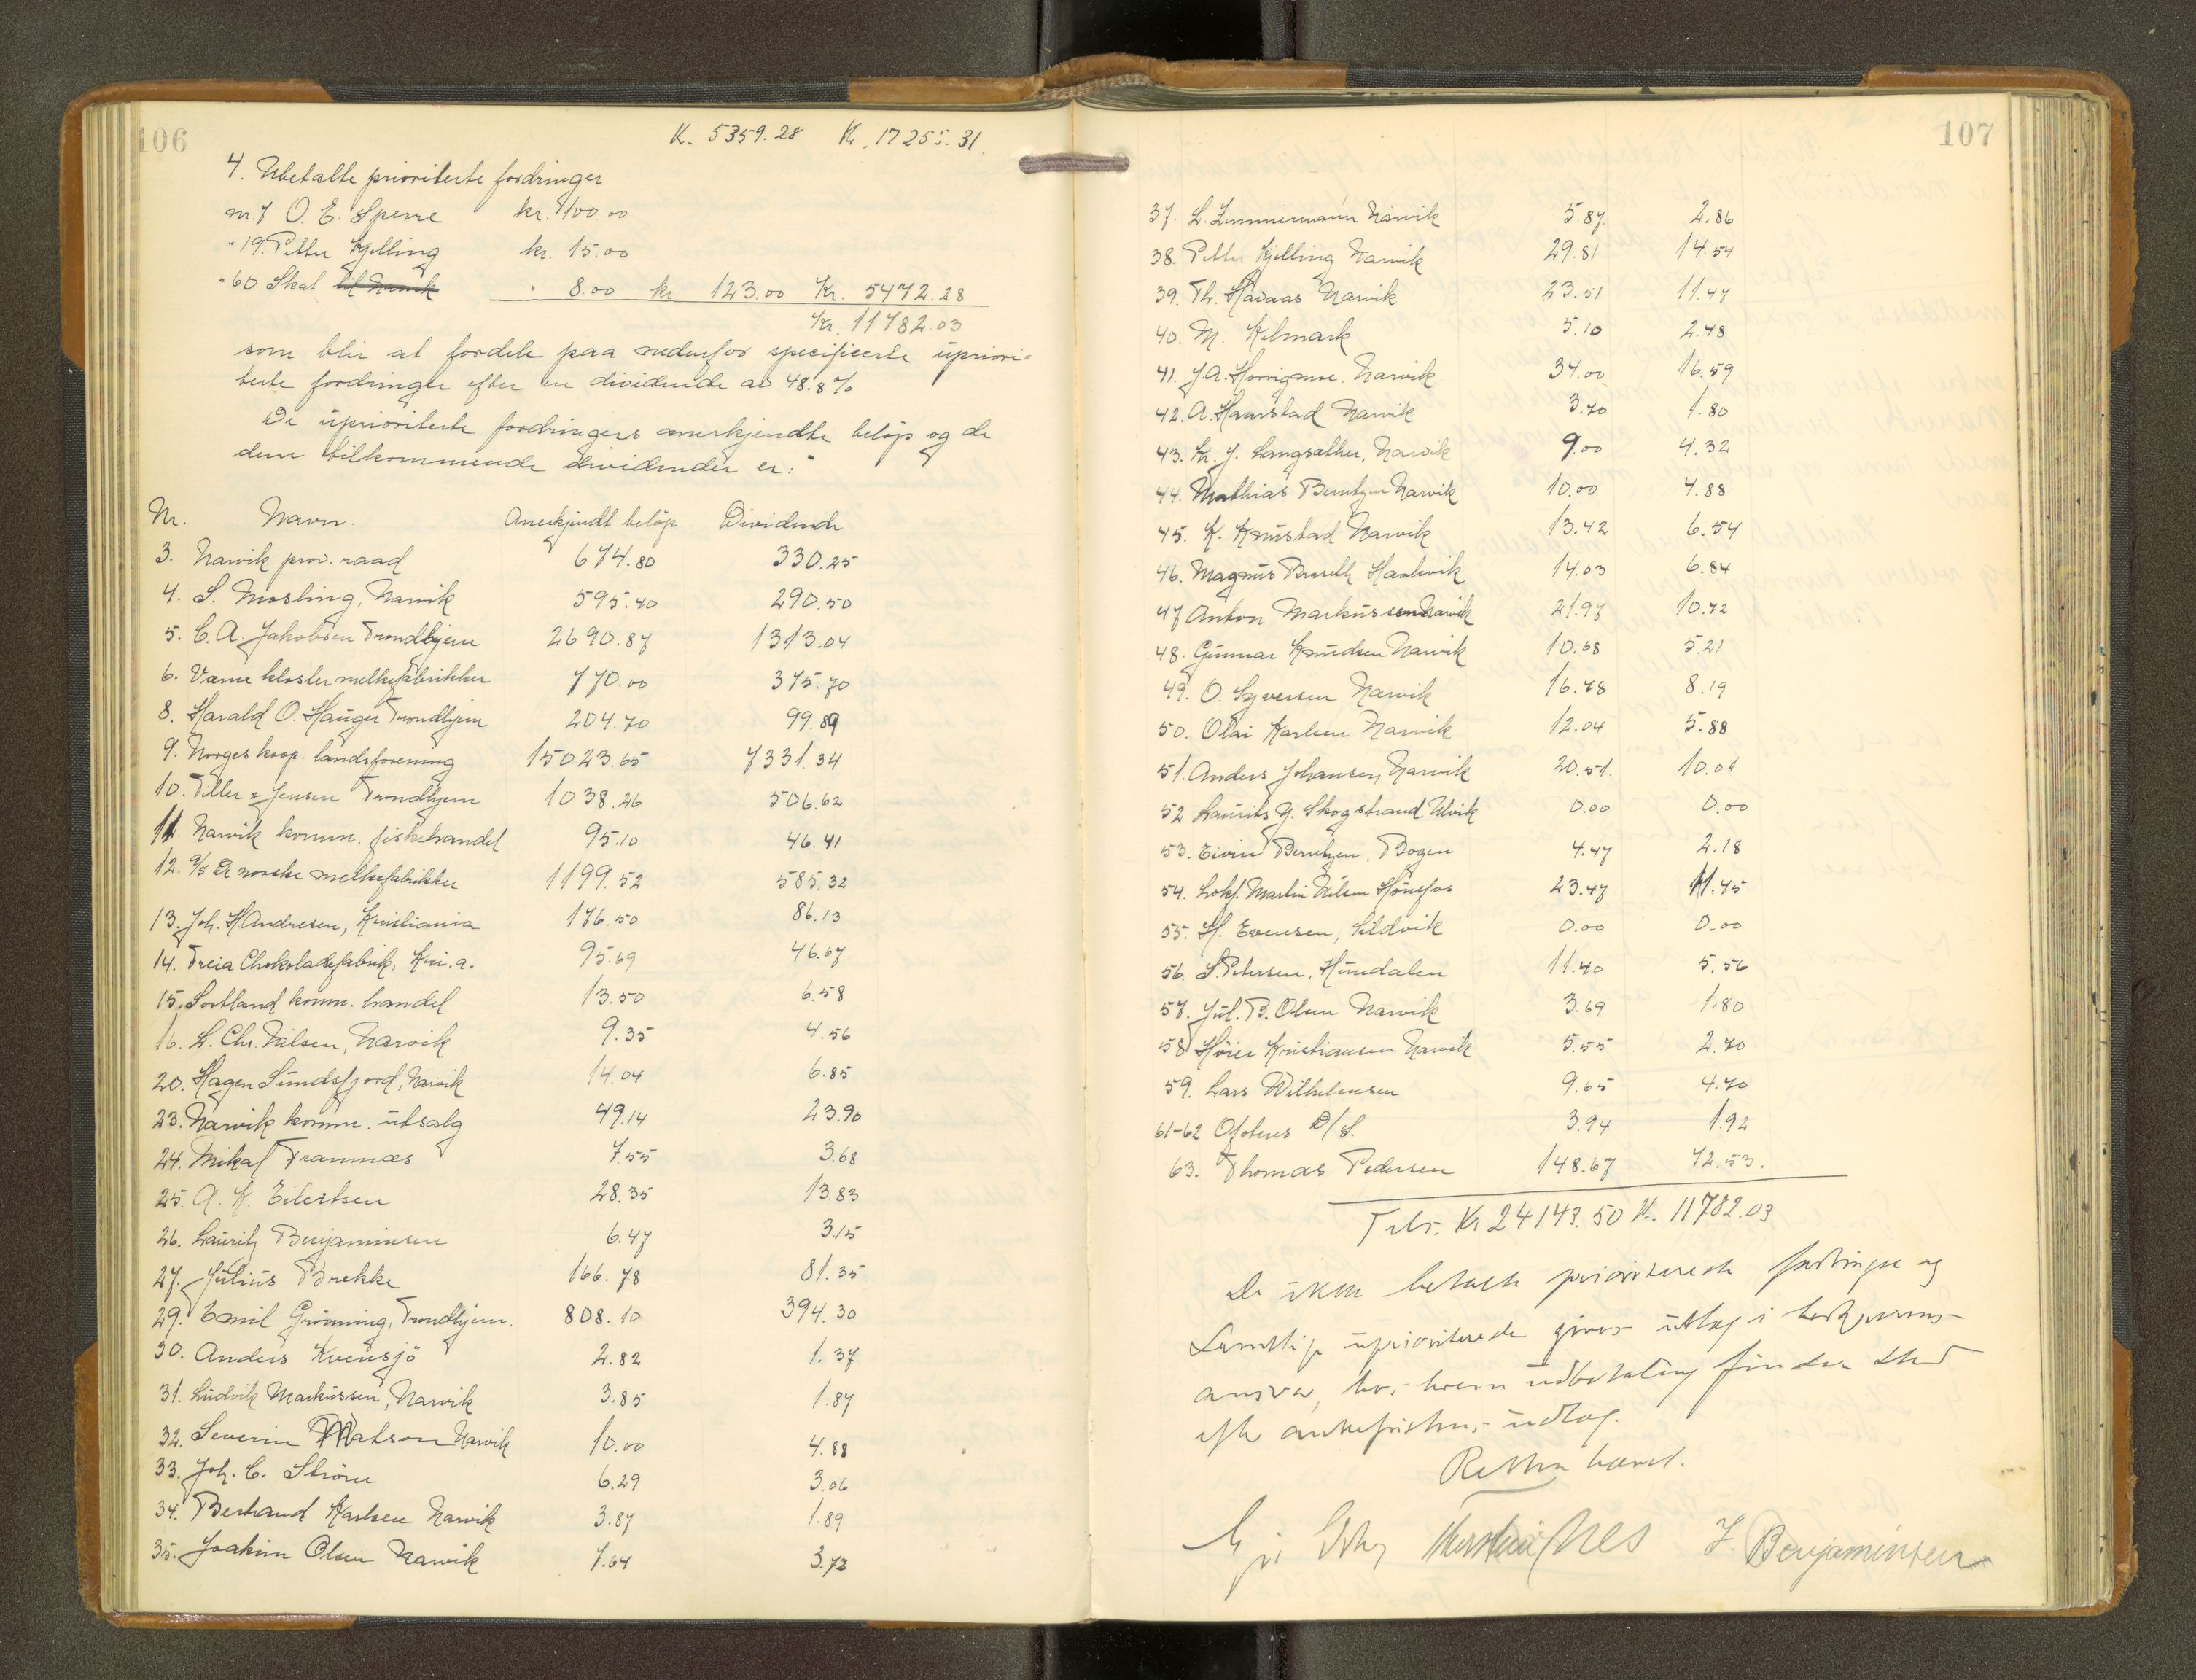 106
K. 5359.28 Kr. 17255.31.
4. Ubetalte prioriterte fordringer
nr. 7 O. E. Sperre kr. 100.00
" 19. Petter Kjelling kr. 15.00
" 60 Skat til Narvik " 8.00 kr 123.00 Kr. 5472.28
Kr. 11782.03
som blir at fordele paa nedenfor specificerte upriori-
terte fordringer efter en dividende av 48.8 %
De uprioriterte fordringers anerkjendte beløp og de
dem tilkommende dividender er:
Nr. Navn. Anerkjendt beløp Dividende
3. Narvik prov. raad 674.80 330.25
4. S. Mosling, Narvik 595.40 290.50
5. C. A. Jakobsen Trondhjem 2690.87 1313.04
6. Værne kloster melkefabrikker 770.00 375.70
8. Harald O. Hauger Trondhjem 204.70 99.89
9. Norges koop. landsforening 15023.65 7331.34
10. Tiller & Jensen Trondhjem 1038.26 506.62
11. Narvik komm. fiskehandel 95.10 46.41
12. A/S De norske melkefabrikker 1199.52 585.32
13. Joh. H. Andresen, Kristiania 176.50 86.13
14. Freia Chokoladefabrik, Kri.a. 95.69 46.67
15. Sortland komm. handel 13.50 6.58
16. L. Chr. Nilsen, Narvik 9.35 4.56
20. Hagen Sundsfjord, Narvik 14.04 6.85
23. Narvik komm. utsalg 49.14 23.90
24. Mikal Trannæs 7.55 3.68
25. A. K. Eilertsen 28.35 13.83
26. Lauritz Benjaminsen 6.47 3.15
27. Julius Brekke 166.78 81.35
29. Emil Grønning, Trondhjem. 808.10 394.30
30. Anders Kvensjö 2.82 1.37
31. Ludvik Markussen, Narvik 3.85 1.87
32. Severin Matson Narvik 10.00 4.88
33. Joh. C. Strøm 6.29 3.06
34. Berhard Karlsen Narvik 3.87 1.89
35. Joakim Olsen Narvik 7.64 3.72
107
37. L. Zimmermann Narvik 5.87 2.86
38. Petter Kjelling Narvik 29.81 14.54
39. Th. Havaas Narvik 23.51 11.47
40. M. Kilmark 5.10 2.48
41. J. A. Narvik 34.00 16.59
42. A. Haarstad Narvik 3.70 1.80
43. Kr. J. Langsæther, Narvik 9.00 4.32
44. Mathias Berntzen Narvik 10.00 4.88
45. K. Knustad Narvik 13.42 6.54
46. Magnus Haakvik 14.03 6.84
47 Anton Markussen Narvik 21.97 10.72
48. Gunnar Knudsen Narvik 10.68 5.21
49. O. Syversen Narvik 16.78 8.19
50. Olai Karlsen Narvik 12.04 5.88
51. Anders Johansen, Narvik 20.51. 10.01
52 Laurits G. Skogstrand 0.00 0.00
53. Eivin Berntzen, Bogen 4.47 2.18
54. Lokf. Martin Nilsen Hønefos 23.47 11.45
55. H. Evensen, Sildvik 0.00 0.00
56. S. Petersen, Hundalen 11.40 5.56
57. Jul. B. Olsen Narvik 3.69 1.80
58 Høier Kristiansen Narvik 5.55 2.70
59. Lars Wilhelmsen 9.65 4.70
61-62 Ofotens D/S. 3.94 1.92
63. Thomas Pedersen 148.67 72.53.
Tils. Kr 24143.50 Kr. 11782.03
De ikke betalte prioriterede fordringer og
samtlige uprioriterede gives utlæg i
ansvar, hos hvem udbetaling finder sted
efter ankefristens udløp.
Retten hævet.
Nes J. Benjaminsen